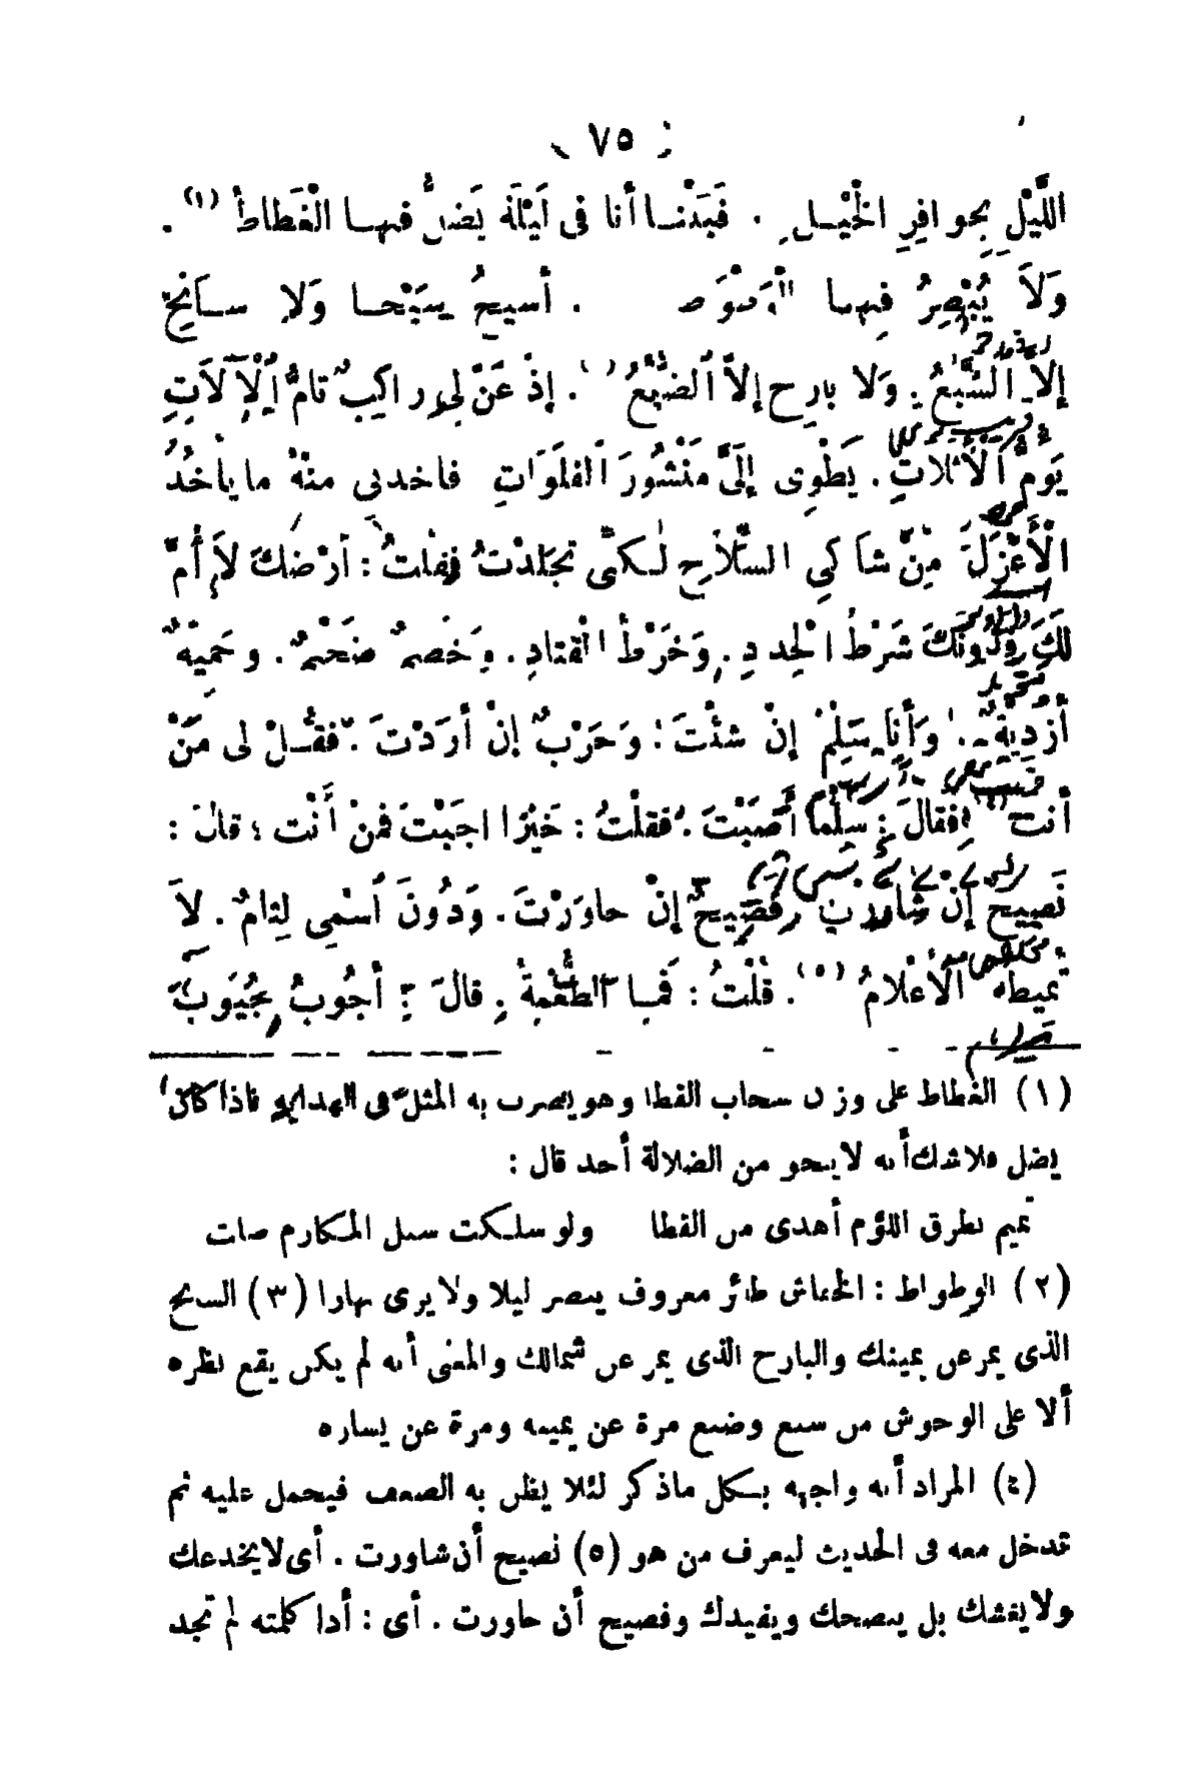 ( ٧٥ )
اللَّيْلِ بِحوافِرِ الخَيْلِ . فَبَيْنَا أنا فى لَيْلَةٍ يَضِلُّ فيها الْغَطاطُ (١) .
وَلاَ يُبْصِرُ فِيها الْوَطْوَاطُ . أسيحُ سَيْحا وَلا سانِحَ
إلاَّ السَّبُعُ . وَلا بارِح إلاَّ الضَّبُعُ . إذْ عَنَّ لِى راكِبٌ تامُّ الْآلاَتِ
يَؤمُّ الْأَثَلاتِ . يَطْوِى إلَىَّ مَنْشُورَ الْفلَوَاتِ فاخدنى منْهُ ما يأخُذُ
الْأَعْزَلَ مِنْ شاكِى السِّلاَحِ لٰكنِّى تجَلدْتُ فقلتُ : أرْضَكَ لاَ أُمَّ
لَكَ وَدُونَكَ شَرْطُ الْحِدادِ . وَخَرْطُ الْقتادِ . وَخَصمٌ ضَخْمٌ . وحَمِيَّةٌ
أزدِيَّةٌ . وَأنا سَلِمْ إنْ شئْتَ : وَحَرْبٌ إنْ أرَدْتَ . فقُلْ لى مَنْ
أنت (٤) فقالَ : سِلْماً أَصَبْتَ . فقلْتُ : خَيْرًا اجَبْتَ فمنْ أَنْت ؛ قالَ :
نَصِيحٌ إنْ شاورْتَ . فَصِيحٌ إنْ حاورْتَ . وَدُونَ اسْمِى لِثامٌ . لاَ
تميطهُ الأعْلامُ (٥) . قُلْتُ : فَمَا الطُّعْمةُ . قالَ : أجُوبُ جُيُوبَ
(١) الغطاط على وزن سحاب القطا وهو يضرب به المثل فى الهداية فاذا كان
يضل فلا شك أنه لا ينجو من الضلالة أحد قال :
تميم بطرق اللؤم أهدى من القطا    ولو سلكت سبل المكارم ضلت
(٢) الوطواط : الخفاش طائر معروف يبصر ليلا ولا يرى نهارا (٣) السانح
الذى يمر عن يمينك والبارح الذى يمر عن شمالك والمعنى أنه لم يكن يقع نظره
ألا على الوحوش من سبع وضبع مرة عن يمينه ومرة عن يساره
(٤) المراد أنه واجهه بكل ماذكر لئلا يظن به الضعف فيحمل عليه ثم
تدخل معه فى الحديث ليعرف من هو (٥) نصيح أن شاورت . أى لا يخدعك
ولا يغشك بل ينصحك ويفيدك وفصيح أن حاورت . أى : أذا كلمته لم تجد